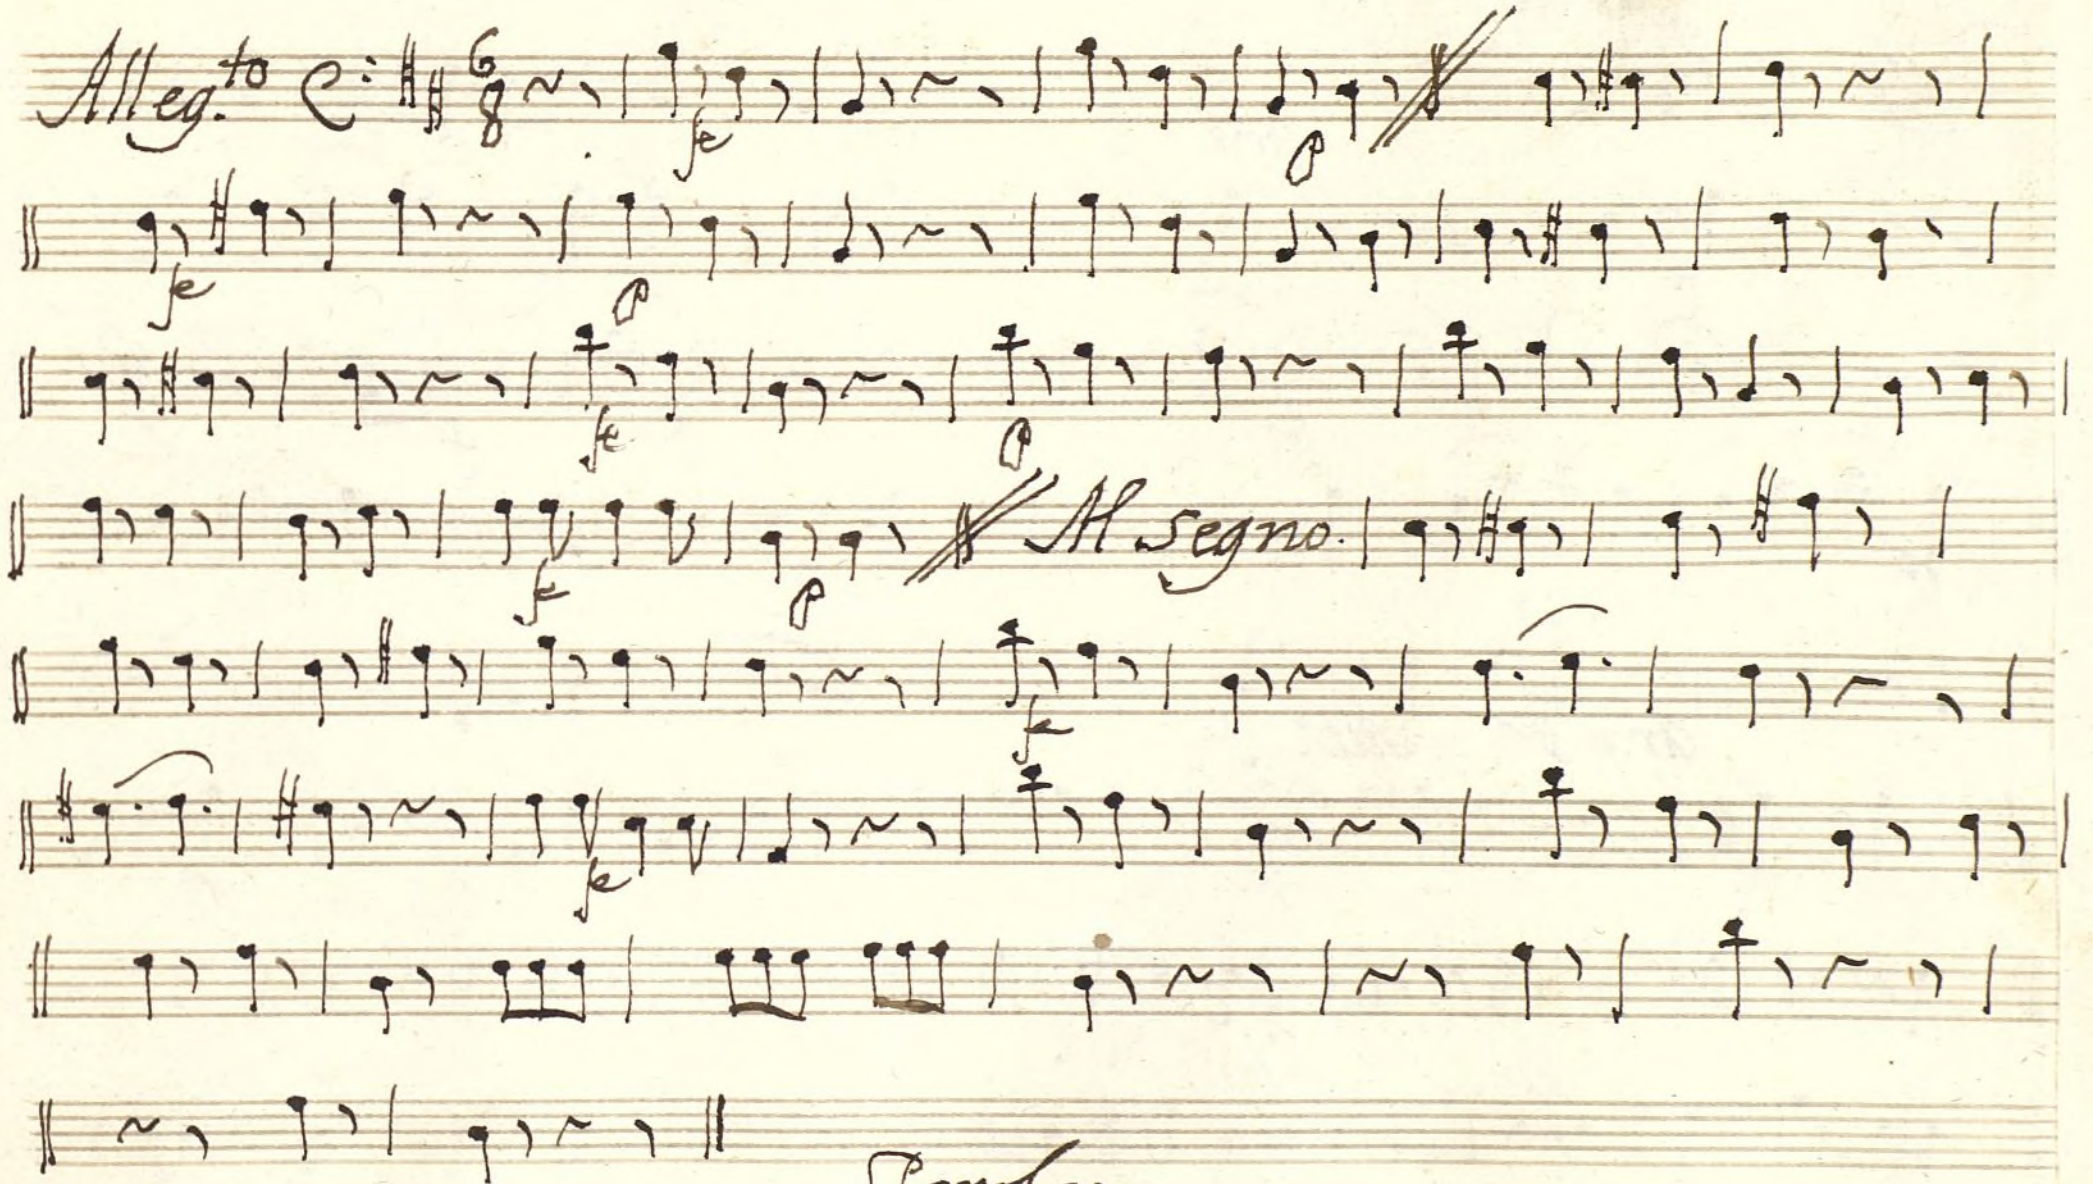 Alleg.to 6 8
fe P
fe P
fe P
fe P Al segno.
fe
fe